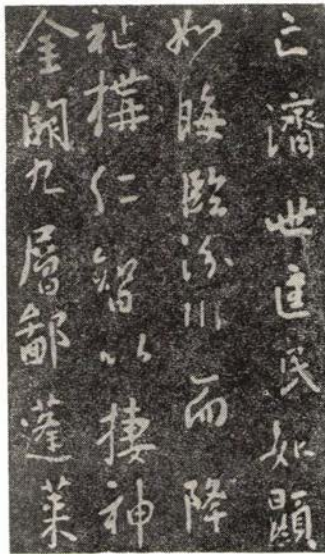 亡濟世匡民如顯
如晦臨汾川而降
祉構仁智以棲神
金闕九層鄙蓬萊